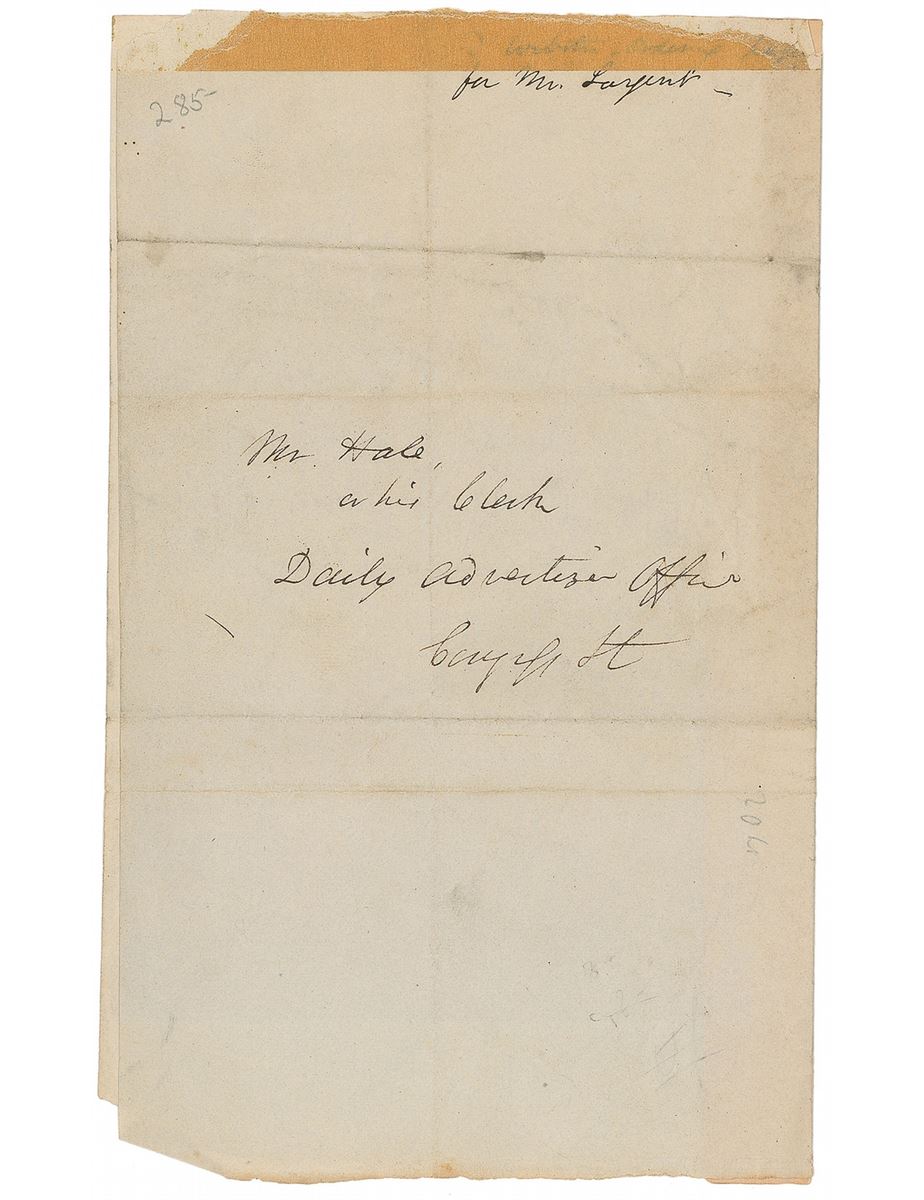 for Mr. Sargent –
285
Mr. Hale,
or his Clerk
Daily Advertiser Office
Congress St
204